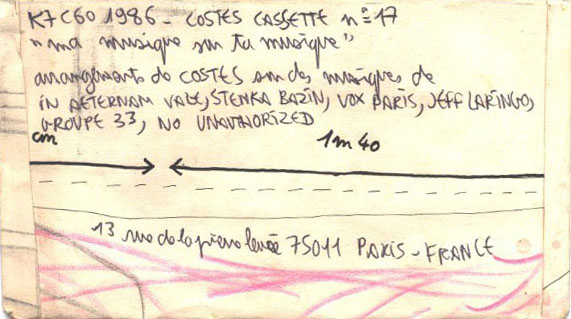 K7 C60 1986 - COSTES CASSETTE n° 17
"ma musique sur ta musique"
arrangements de COSTES sur des musiques de
IN AETERNAM VALE, STENKA BAZIN, VOX PARIS, JEFF LARINGO,
GROUPE 33, NO UNAUTHORIZED
cm
1m40
13 rue de la pierre levée 75011 PARIS - FRANCE